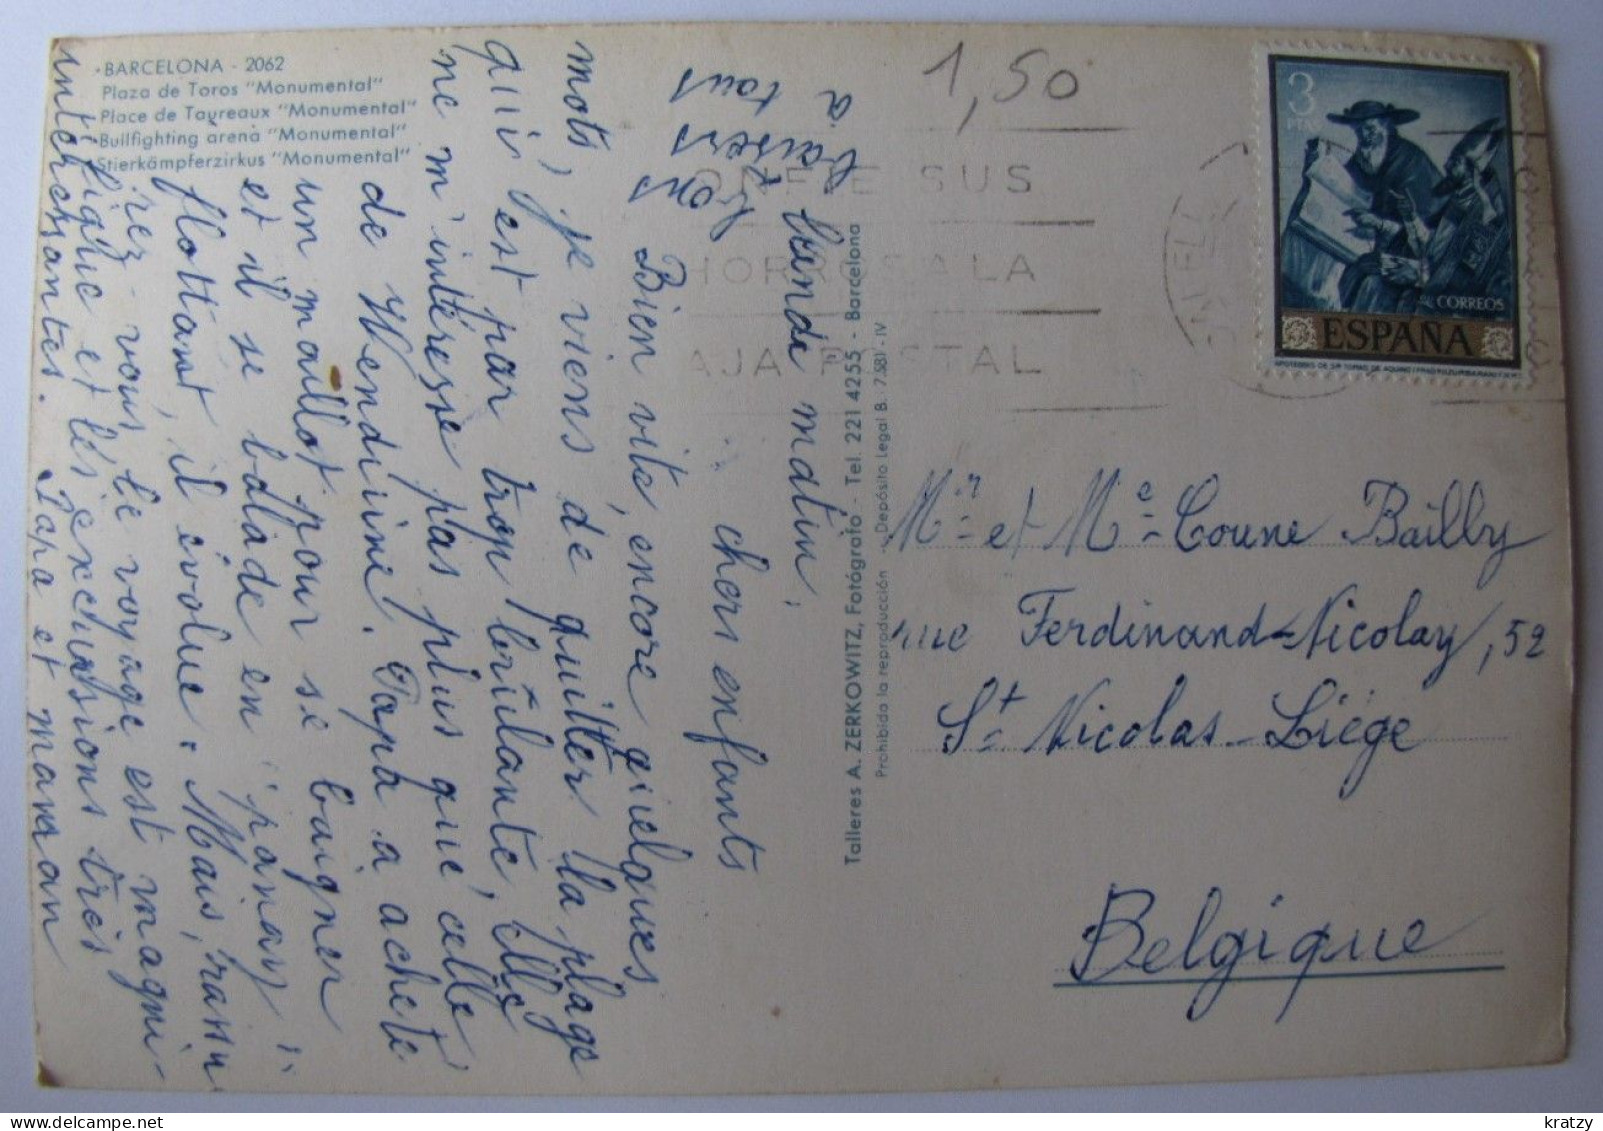 BARCELONA - 2062
Plaza de Toros "Monumental"
Place de Taureaux "Monumental"
Bullfighting arena "Monumental"
Stierkämpferzirkus "Monumental"
lundi matin,
chers enfants
Bien vite, encore quelques
mots, je viens de quitter la plage
qui est par trop brûlante, elle
ne m'intéresse pas plus que celle
de Wenduine. Papa a acheté
un maillot pour se baigner
et il se balade en "panay"
flottant, il évolue. Mais, rassu
rez-vous, le voyage est magni-
fique et les excursions très
intéressantes. Papa et maman
bons
baisers
à tous
Talleres A. ZERKOWITZ, Fotógrafo - Tel. 221 42 55 - Barcelona
Prohibida la reproducción - Depósito Legal B. 7.581 - IV
1,50
SUS
A LA
AJA POSTAL
3
PTAS
CORREOS
ESPAÑA
Mr et Me Coune Bailly
rue Ferdinand-Nicolay, 52
St Nicolas-Liège
Belgique
kratzy